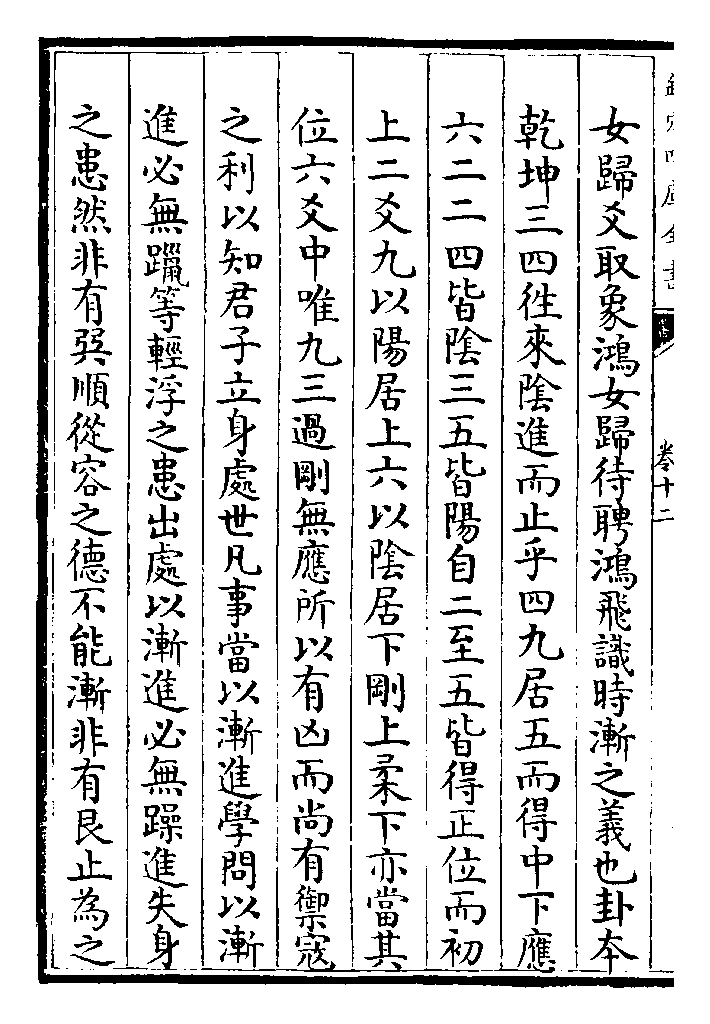 女歸爻取象鴻女歸待聘鴻飛識時漸之義也卦本
乾坤三四徃來陰進而止乎四九居五而得中下應
六二二四皆陰三五皆陽自二至五皆得正位而初
上二爻九以陽居上六以陰居下剛上柔下亦當其
位六爻中唯九三過剛無應所以有凶而尚有禦寇
之利以知君子立身處世凡事當以漸進學問以漸
進必無躐等輕浮之患出處以漸進必無躁進失身
之患然非有巽順從容之德不能漸非有艮止為之
卷十二